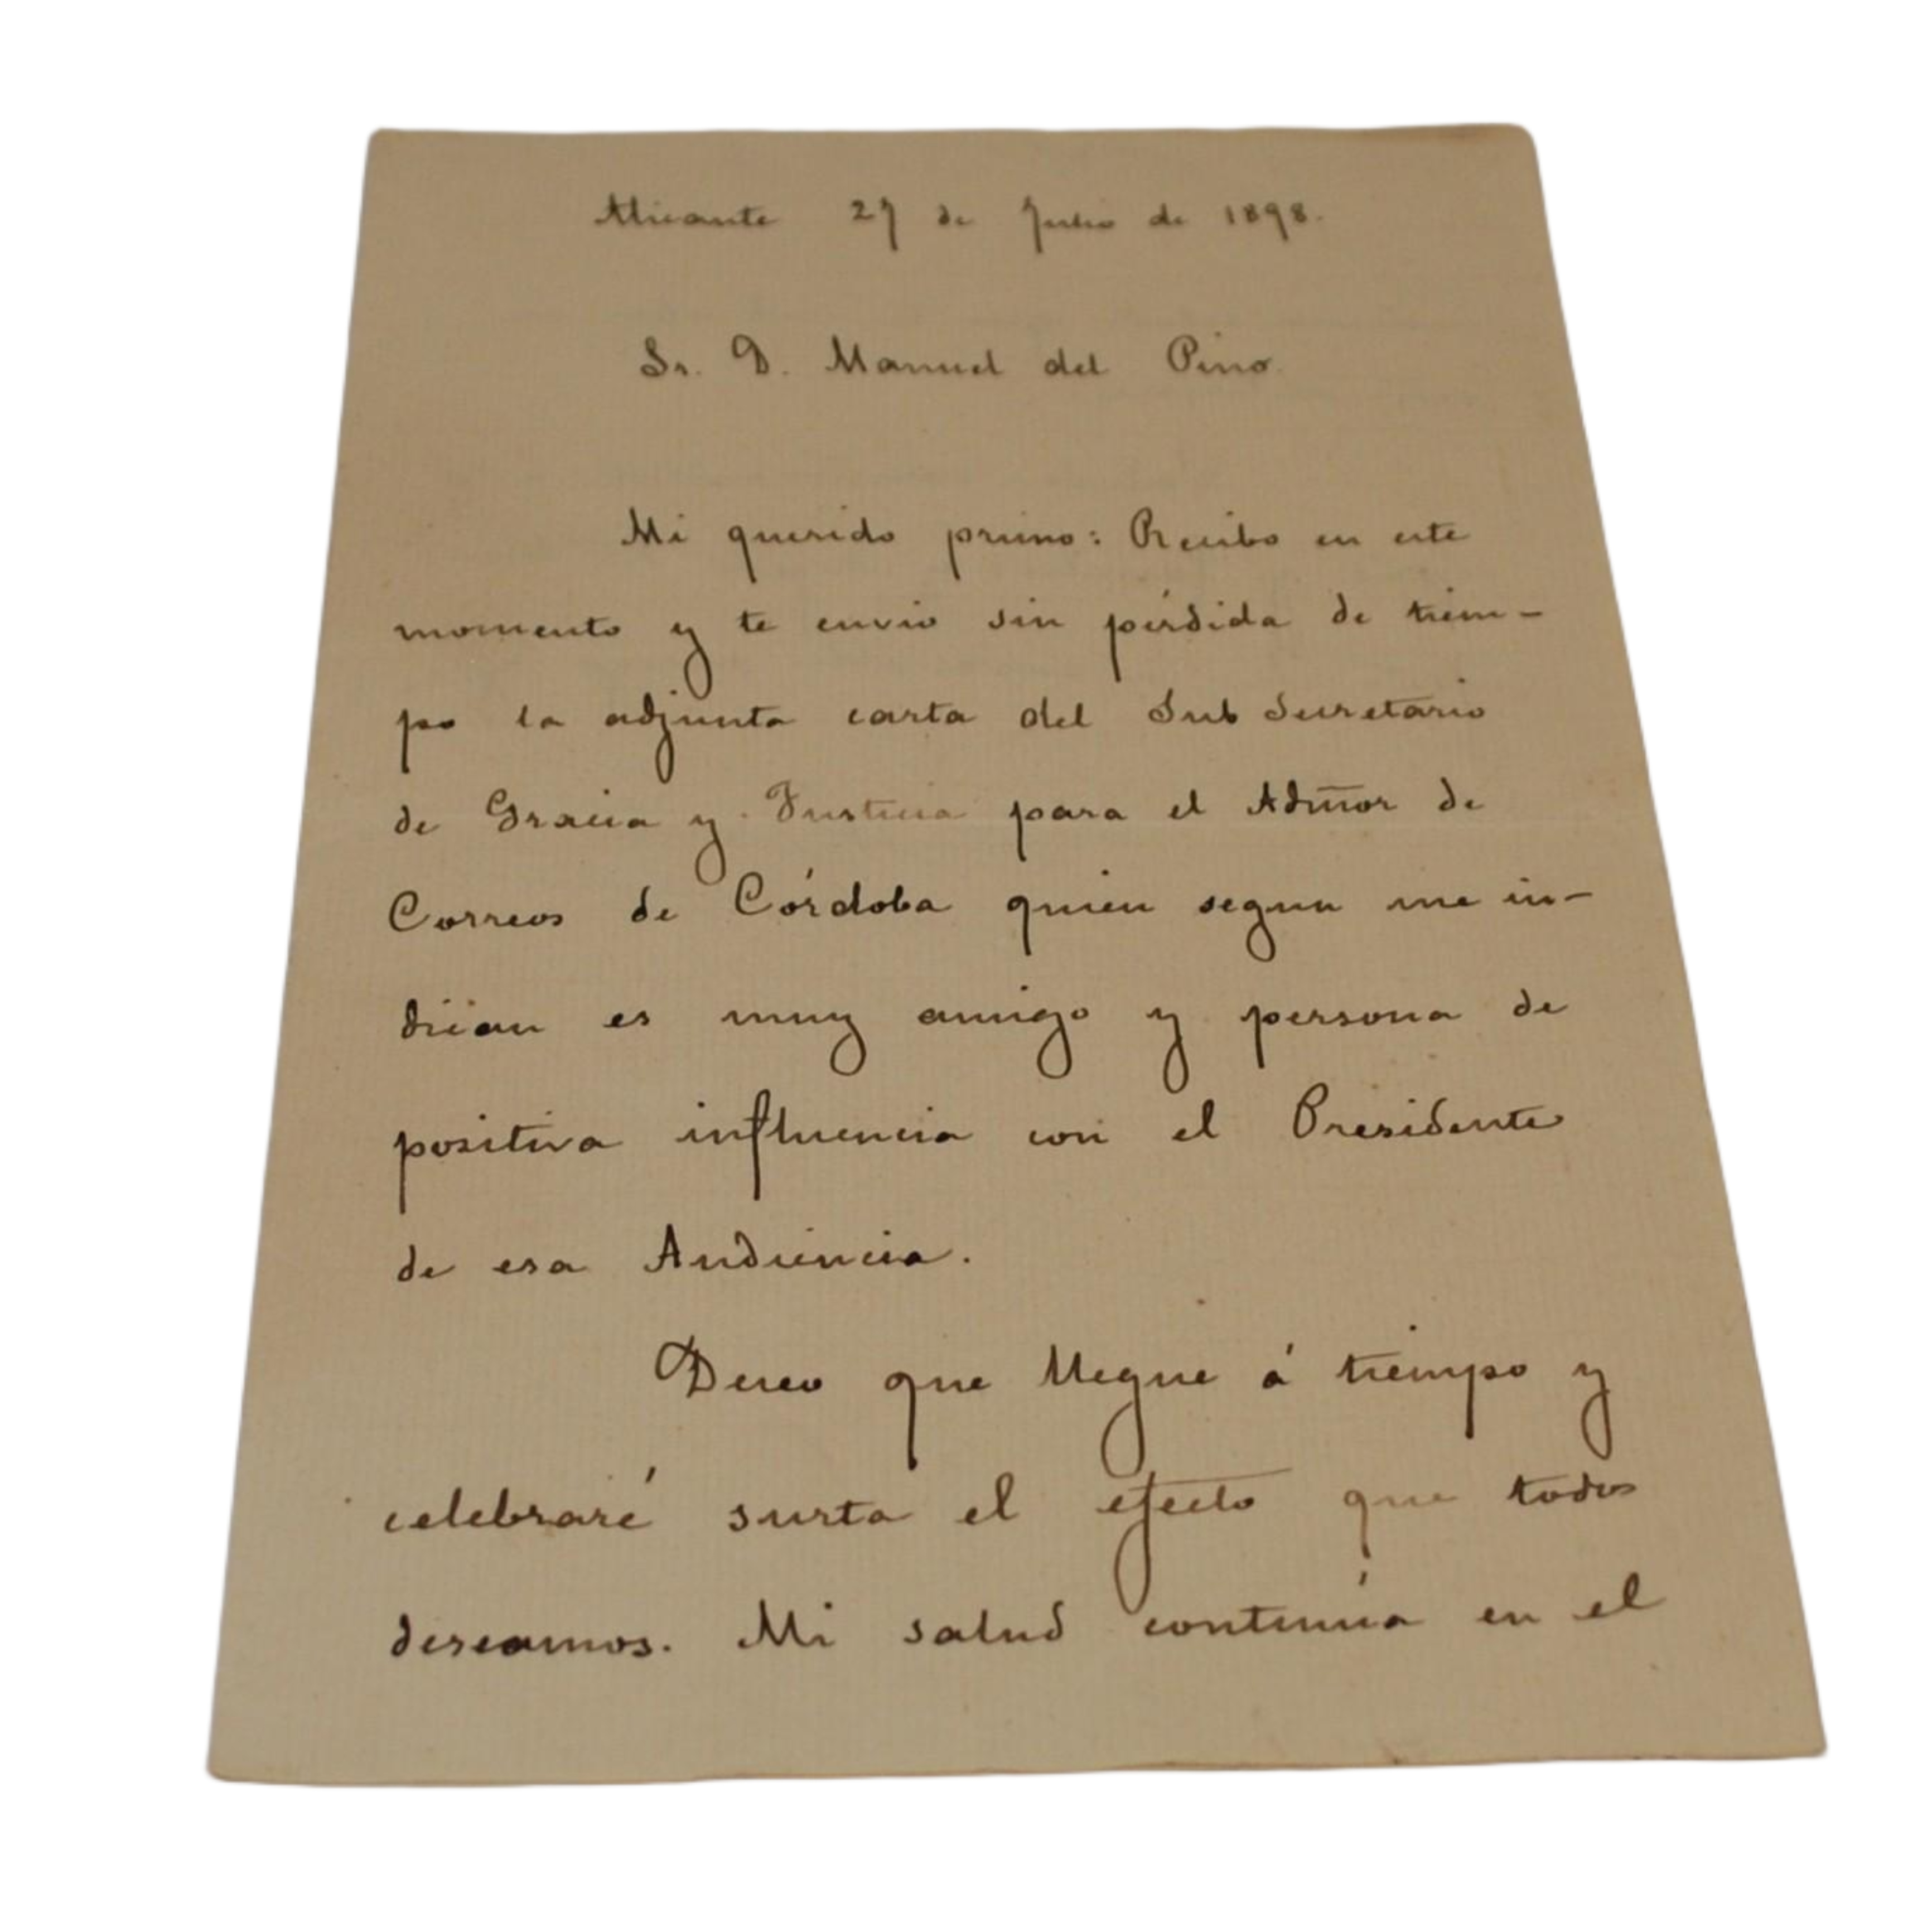 Alicante 27 de Julio de 1898.
Sr. D. Manuel del Pino.
Mi querido primo: Recibo en este
momento y te envio sin pérdida de tiem-
po la adjunta carta del Sub Secretario
de Gracia y Justicia para el Admor de
Correos de Córdoba quien segun me in-
dican es muy amigo y persona de
positiva influencia con el Presidente
de esa Audiencia.
Deseo que llegue á tiempo y
celebraré surta el efecto que todos
deseamos. Mi salud continúa en el